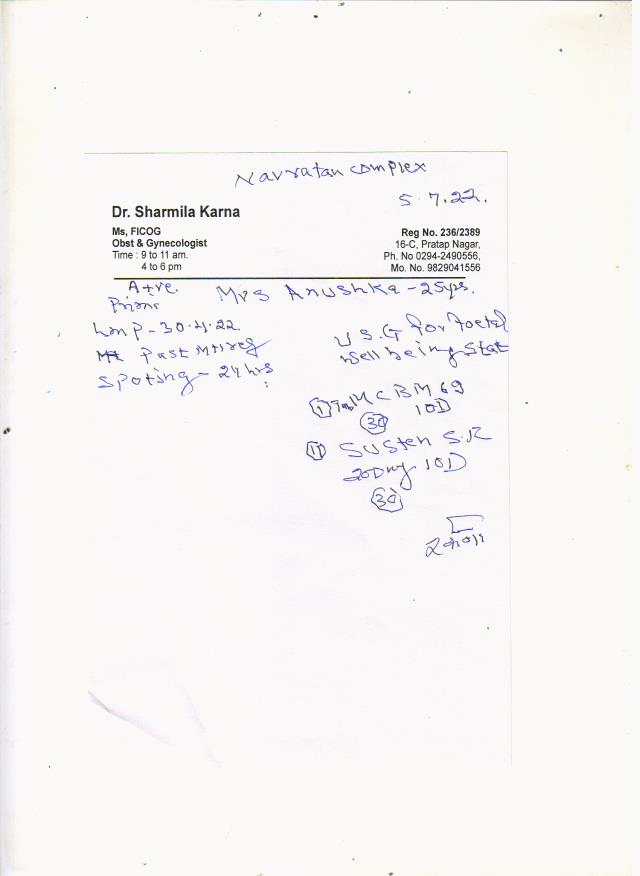 Navratan complex
5.7.22.
Dr. Sharmila Karna
Ms, FICOG
Obst & Gynecologist
Time : 9 to 11 am.
4 to 6 pm
Reg No. 236/2389
16-C, Pratap Nagar,
Ph. No 0294-2490556,
Mo. No. 9829041556
A+ve.
Mrs Anushka - 25yrs.
Primi
LMP - 30.4.22
Past Mt reg
Spoting - 24 hrs
U S.G for Foetal
well being Stat
(I) Tab MCBM 69
10D
(30)
(II) Susten S.R
200mg 10D
(30)